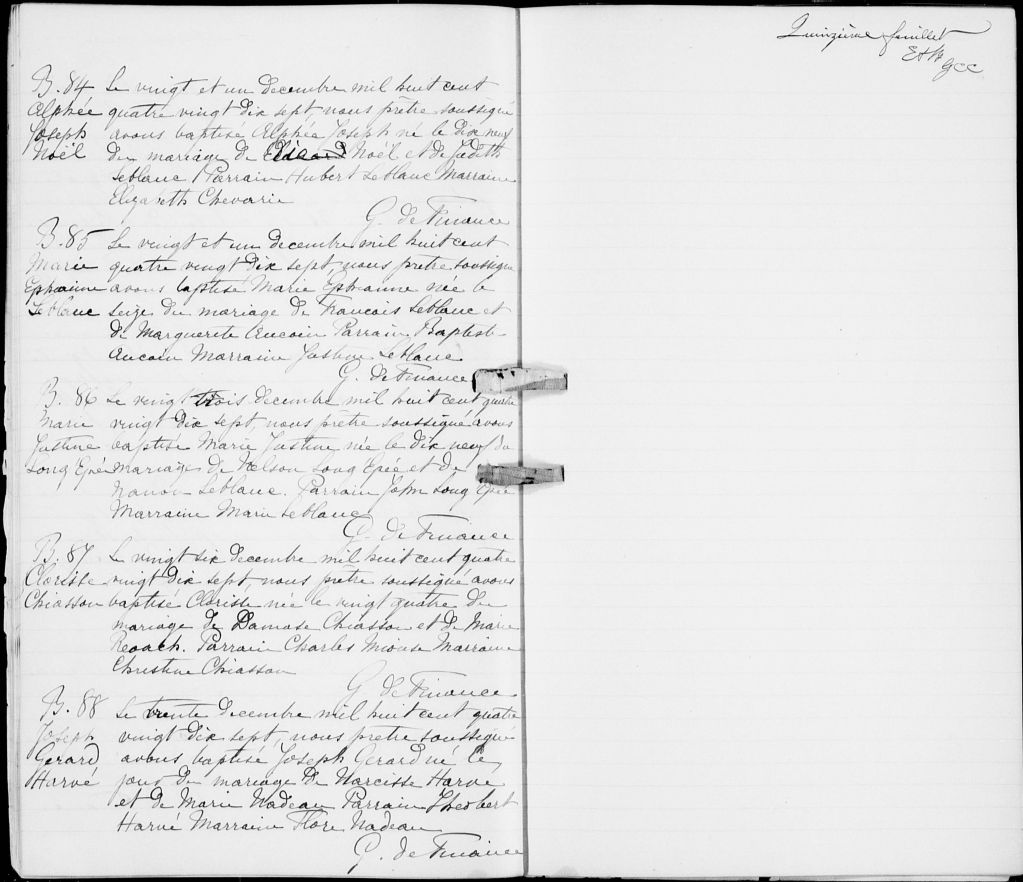 B. 84 Le vingt et un decembre mil huit cent
Alphée quatre vingt dix sept, nous prêtre soussigné
Joseph avons baptisé Alphée Joseph né le dix neuf
Noël du mariage de Noël et de Judith
Leblanc Parrain Hubert Leblanc Marraine
Elizabeth Chevarie
G. de Finance
B. 85 Le vingt et un decembre mil huit cent
Marie quatre vingt dix sept, nous prêtre soussigné
avons baptisé Marie née le
Leblanc seize du mariage de Francois Leblanc et
de Marguerite Aucoin Parrain Baptiste
Aucoin Marraine Justine Leblanc
G. de Finance
B. 86 Le vingt trois decembre mil huit cent quatre
Marie vingt dix sept, nous prêtre soussigné avons
Justine baptisé Marie Justine née le dix neuf du
Long Epée mariage de Nelson Long Epée et de
Nanon Leblanc. Parrain John Long Epée
Marraine Marie Leblanc
G. de Finance
B. 87 Le vingt six decembre mil huit cent quatre
Clarisse vingt dix sept, nous prêtre soussigné avons
Chiasson baptisé Clarisse née le vingt quatre du
mariage de Damase Chiasson et de Marie
Roach. Parrain Charles Miouse Marraine
Christine Chiasson
G. de Finance
B. 88 Le trente decembre mil huit cent quatre
Joseph vingt dix sept, nous prêtre soussigné
Gerard avons baptisé Joseph Gerard né le
Harvé jour du mariage de Narcisse Harvé
et de Marie Nadeau Parrain Theobert
Harvé Marraine Flore Nadeau
G. de Finance
Quinzième feuillet
GCC